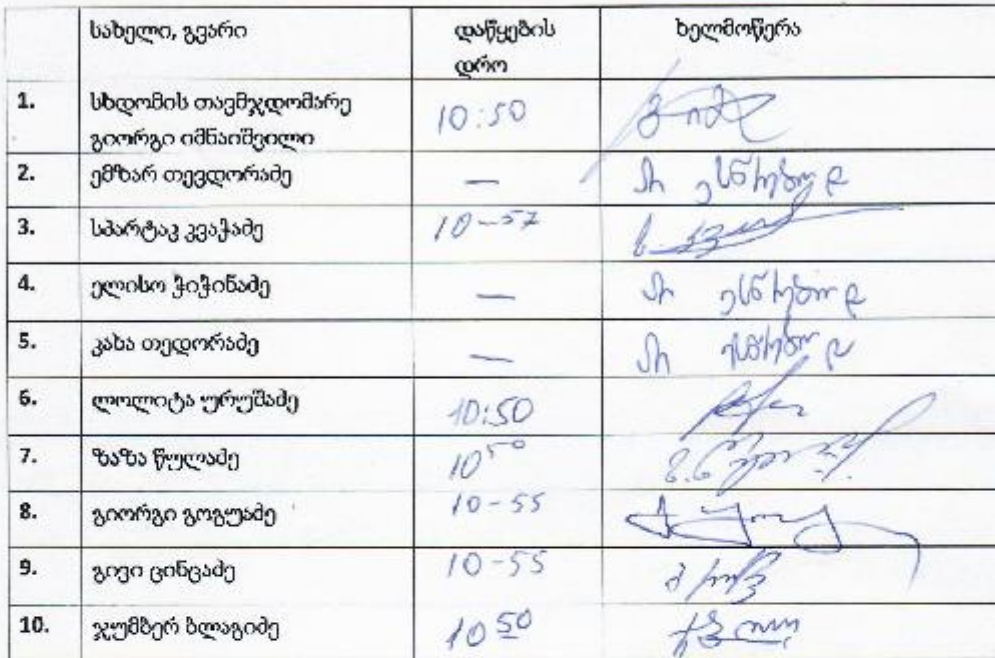 სახელი, გვარი დაწყების ხელმოწერა
დრო
1. სხდომის თავმჯდომარე 10:50
გიორგი იმნაიშვილი
2. ემზარ თევდორაძე — არ ესწრებოდა
3. სპარტაკ კვაჭაძე 10-57
4. ელისო ჭიჭინაძე — არ ესწრებოდა
5. კახა თედორაძე — არ ესწრებოდა
6. ლოლიტა ურუშაძე 10:50
7. ზაზა წულაძე 10 50
8. გიორგი გოგუაძე 10-55
9. გივი ცინცაძე 10-55
10. ჯუმბერ ბლაგიძე 10 50